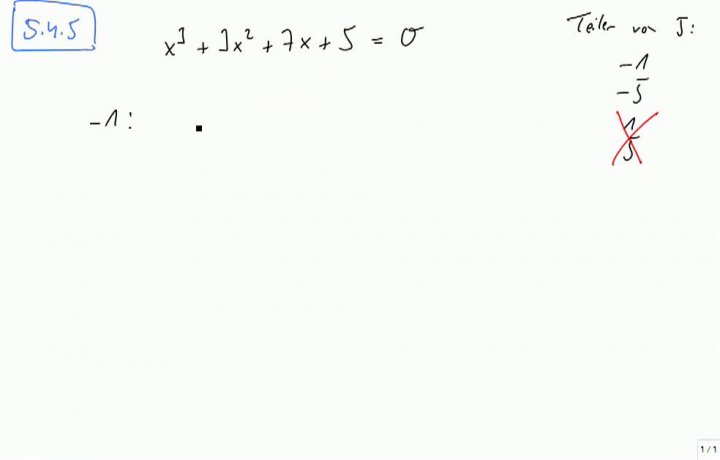 5.4.5
x³ + 3x² + 7x + 5 = 0
Teiler von 5:
-1
-5
1
5
-1:
1/1